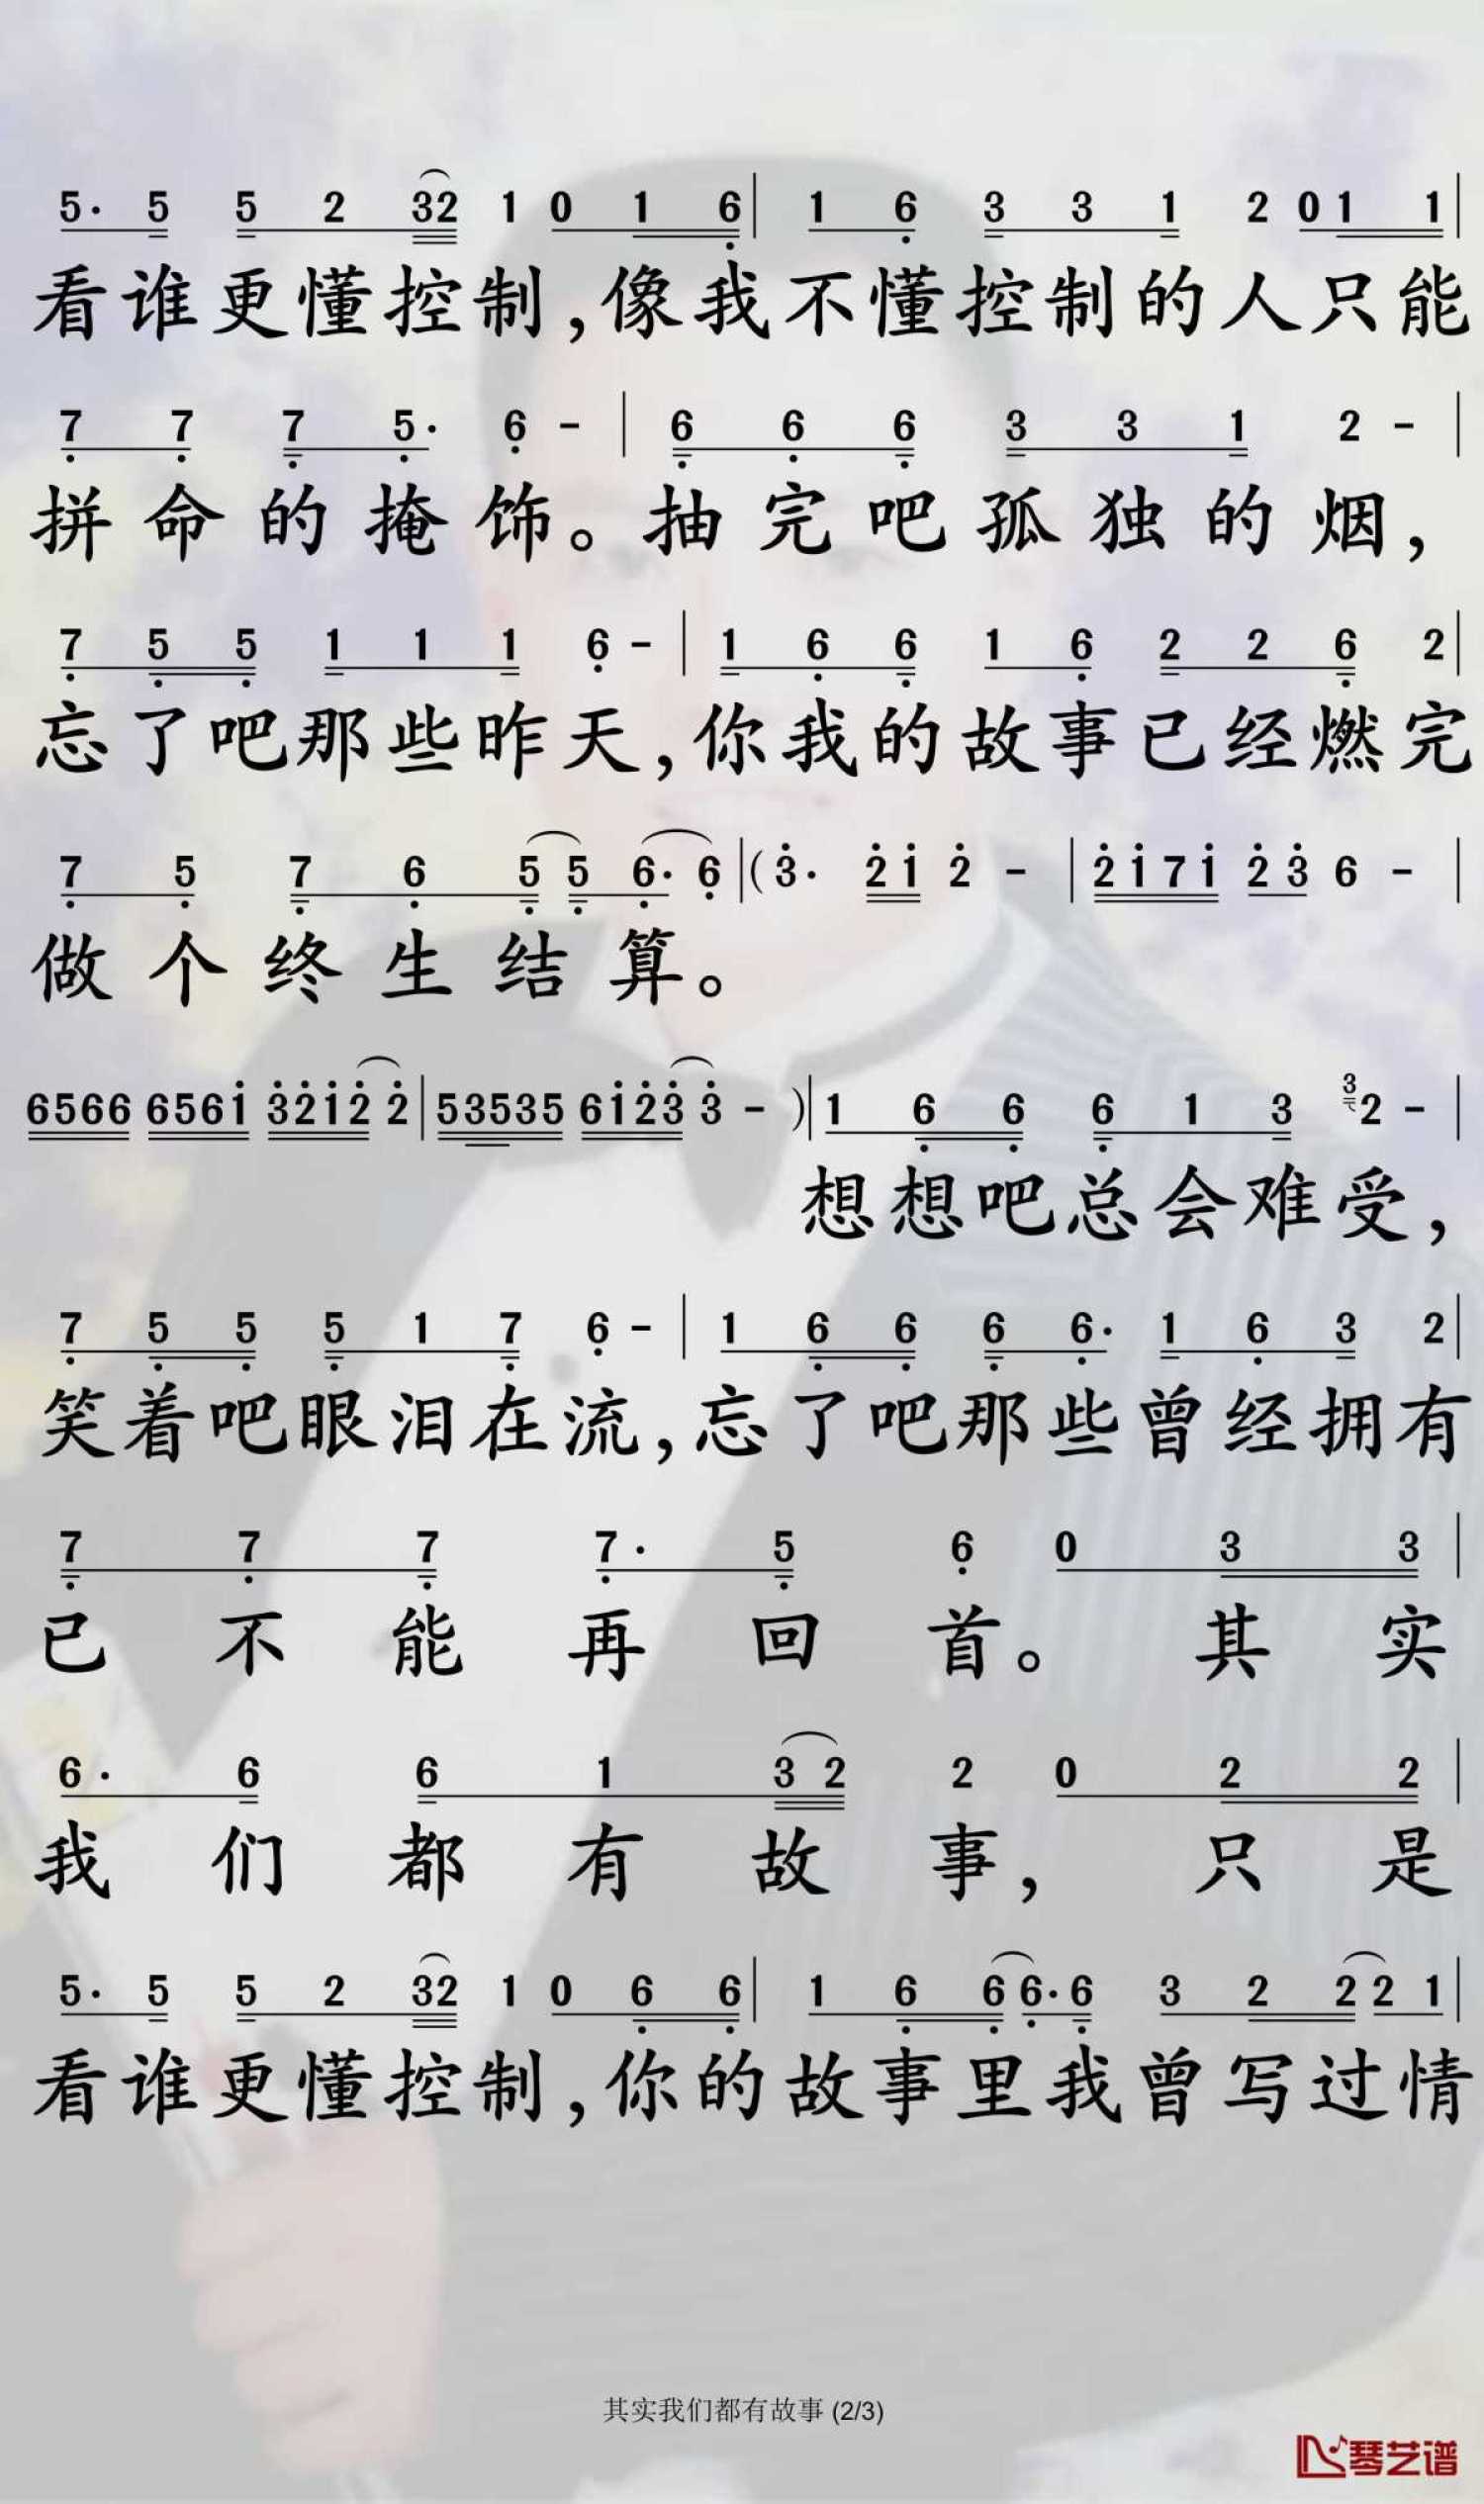 5· 5 5 2 32 1 0 1 6̣ | 1 6̣ 3 3 1 2 0 1 1 |
看谁更懂控制,像我不懂控制的人只能
7̣ 7̣ 7̣ 5̣· 6̣ - | 6̣ 6̣ 6̣ 3 3 1 2 - |
拼命的掩饰。抽完吧孤独的烟,
7̣ 5̣ 5̣ 1 1 1 6̣ - | 1 6̣ 6̣ 1 6̣ 2 2 6̣ 2 |
忘了吧那些昨天,你我的故事已经燃完
7̣ 5̣ 7̣ 6̣ 5̣ 5̣ 6̣· 6̣ | (3̇· 2̇ 1̇ 2̇ - | 2̇ 1̇ 7 1̇ 2̇ 3̇ 6 - |
做个终生结算。
6566 6561̇ 3̇2̇1̇2̇ 2̇ | 53535 61̇2̇3̇ 3̇ - ) | 1 6̣ 6̣ 6̣ 1 3 3 2 - |
想想吧总会难受,
7̣ 5̣ 5̣ 5̣ 1 7̣ 6̣ - | 1 6̣ 6̣ 6̣ 6̣· 1 6̣ 3 2 |
笑着吧眼泪在流,忘了吧那些曾经拥有
7̣ 7̣ 7̣ 7̣· 5̣ 6̣ 0 3 3 |
已不能再回首。其实
6· 6 6 1 3 2 2 0 2 2 |
我们都有故事,只是
5· 5 5 2 32 1 0 6̣ 6̣ | 1 6̣ 6̣ 6̣· 6̣ 3 2 2 2 1 |
看谁更懂控制,你的故事里我曾写过情
其实我们都有故事 (2/3)
琴艺谱